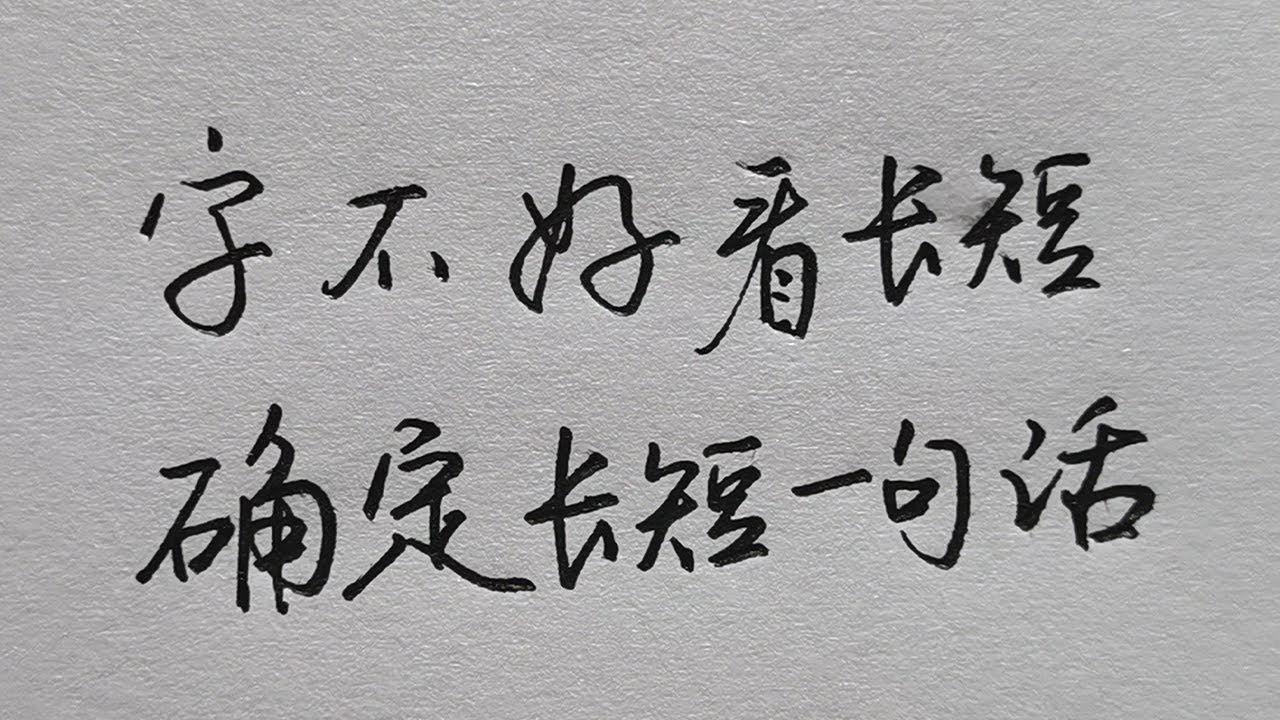 字不好看长短
确定长短一句话